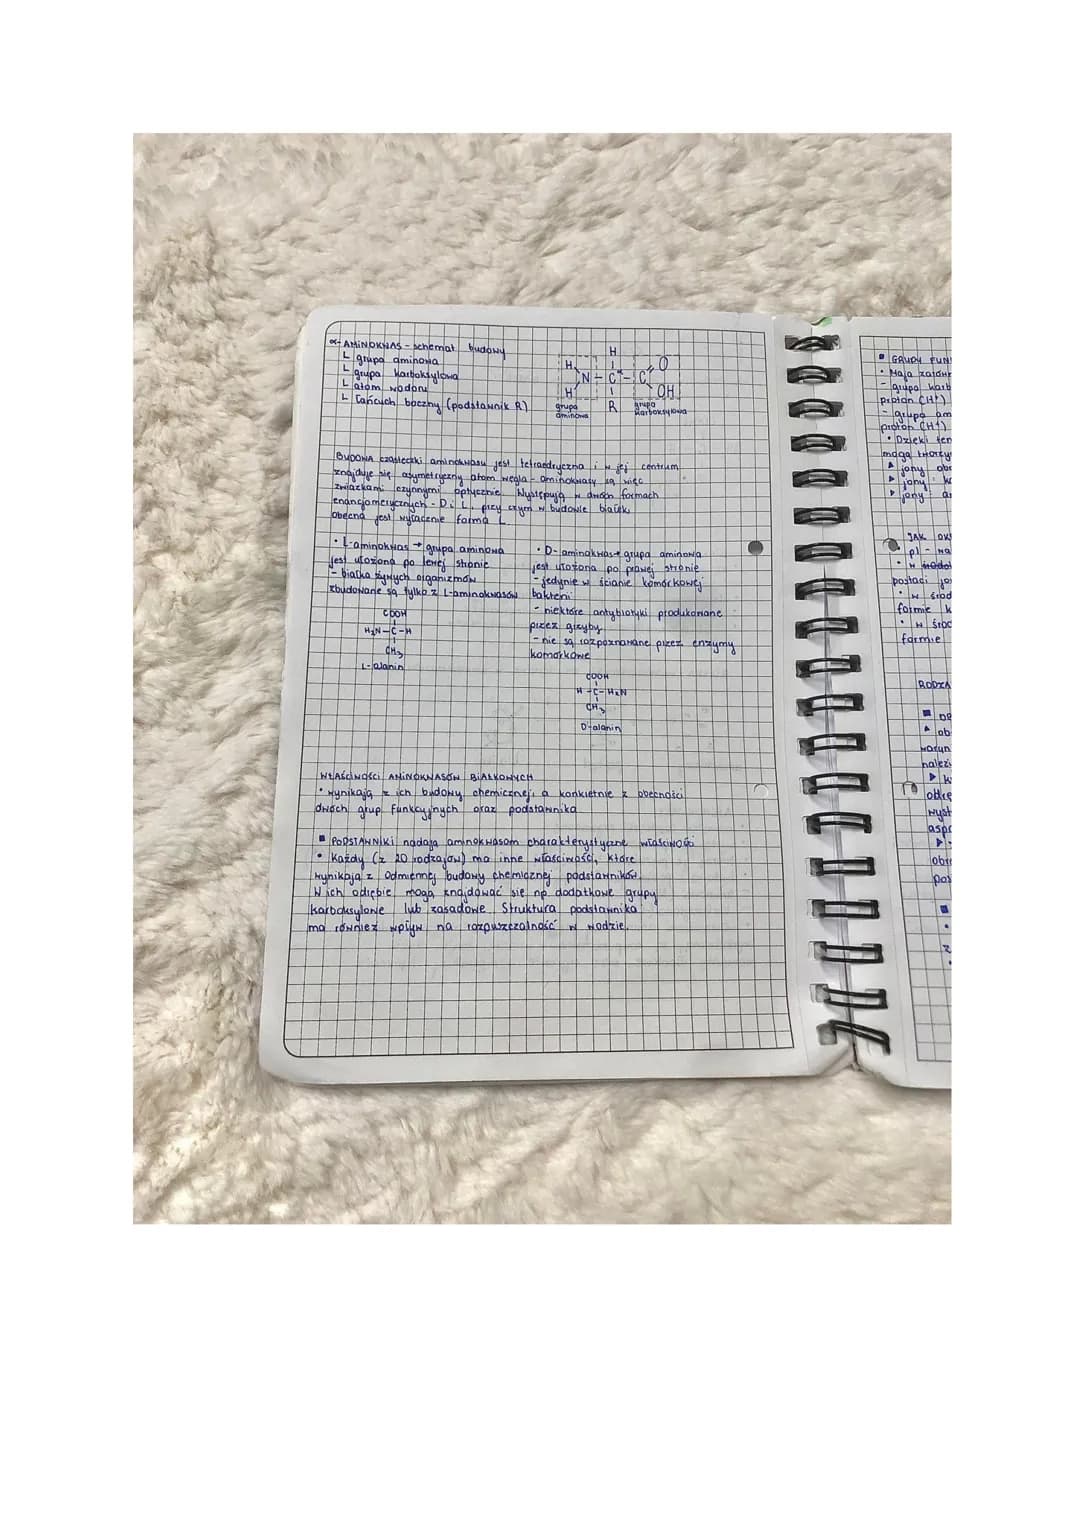 α-AMINOKWAS - schemat budowy
L grupa aminowa
L grupa karboksylowa
L atom wodoru
L łańcuch boczny (podstawnik R)
H
H O
N - C* - C
H OH
R
grupa aminowa
grupa karboksylowa
BUDOWA cząsteczki aminokwasu jest tetraedryczna i w jej centrum
znajduje się asymetryczny atom węgla - aminokwasy są więc
związkami czynnymi optycznie. Występują w dwóch formach
enancjomerycznych - D i L, przy czym w budowie białek
obecna jest wyłącznie forma L
• L-aminokwas → grupa aminowa
jest ułożona po lewej stronie
- białka żywych organizmów
zbudowane są tylko z L-aminokwasów
COOH
H2N-C-H
CH3
L-alanin
• D-aminokwas → grupa aminowa
jest ułożona po prawej stronie
- jedynie w ścianie komórkowej
bakterii
- niektóre antybiotyki produkowane
przez grzyby
- nie są rozpoznawane przez enzymy
komórkowe
COOH
H-C-H2N
CH3
D-alanin
WŁAŚCIWOŚCI AMINOKWASÓW BIAŁKOWYCH
• wynikają z ich budowy chemicznej, a konkretnie z obecności
dwóch grup funkcyjnych oraz podstawnika
■ PODSTAWNIKI nadają aminokwasom charakterystyczne właściwości
• Każdy (z 20 rodzajów) ma inne właściwości, które
wynikają z odmiennej budowy chemicznej podstawników.
W ich odrębie mogą znajdować się np. dodatkowe grupy
karboksylowe lub zasadowe. Struktura podstawnika
ma również wpływ na rozpuszczalność w wodzie.
■ GRUPY FUN
• Mają
- grupa karb
proton (H+)
- grupa am
proton (H+)
• Dzięki
mogą tworzy
▲ jony
▲ jony
▶ jony
JAK
pI - wa
• w
postaci jo
• w środ
formie k
• w środ
formie
RODZA
■
▲